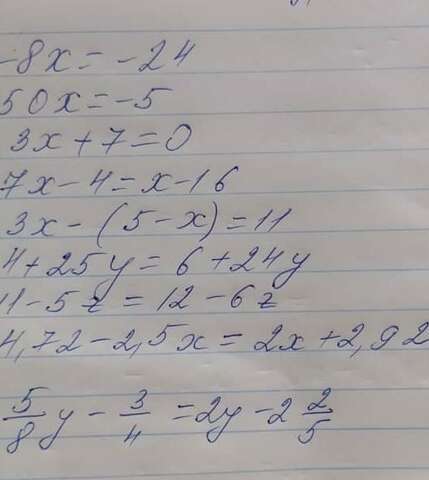 -8x = -24
50x = -5
3x + 7 = 0
7x - 4 = x - 16
3x - (5 - x) = 11
4 + 25y = 6 + 24y
11 - 5z = 12 - 6z
4,72 - 2,5x = 2x + 2,92
5/8 y - 3/4 = 2y - 2 2/5